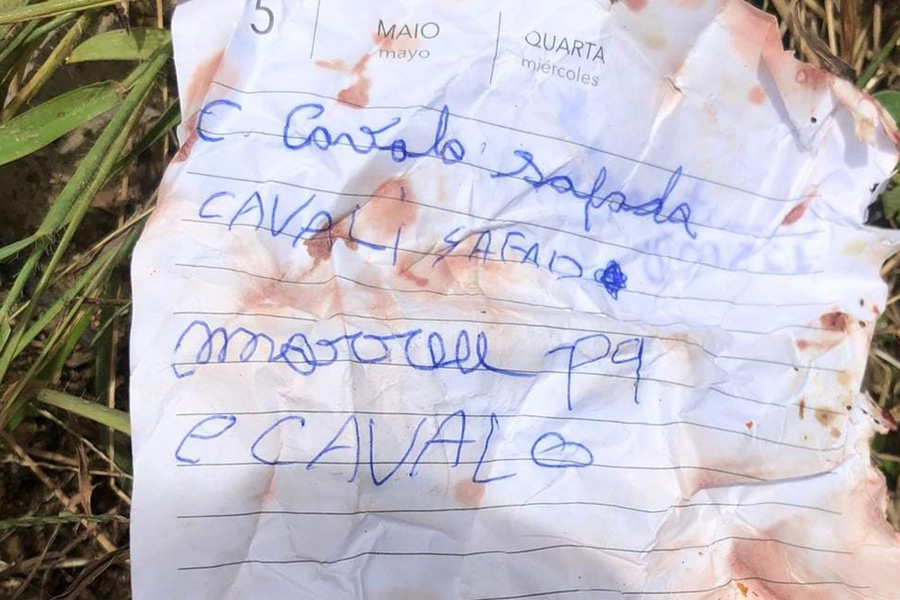 5 MAIO QUARTA
mayo miércoles
C. Cavalo safado
CAVALI SAFADO
morreu pq
e CAVALO